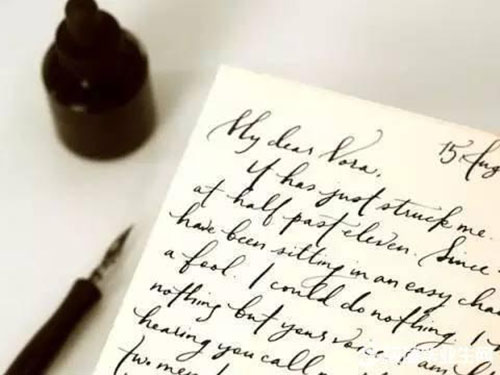 15 Aug
My dear Nora,
It has just struck me.
at half past eleven. Since
have been sitting in an easy chai
a fool. I could do nothing. I
nothing but your voi am li
hearing you call
two men